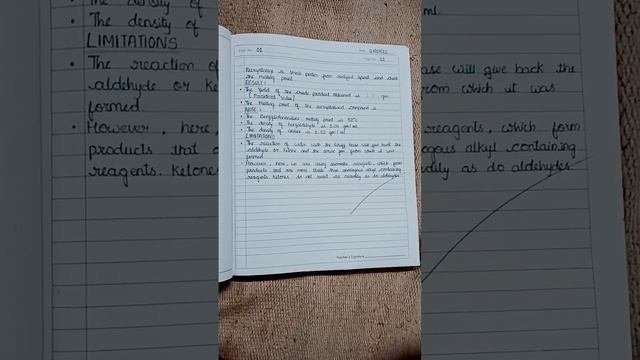 Page No. 01
Date
Page No. 02
Recrystallize in small portion from rectified spirit and check
the melting point.
RESULT :
• The yield of the crude product obtained is gm
[Practical Value]
• The Melting point of the recrystallised component is
NOTE :
• The Benzylideneaniline melting point is 52°C
• The density of benzaldehyde is 1.04 gm/ml.
• The density of aniline is 1.02 gm/ml.
LIMITATIONS
• The reaction of water with the Schiff base will give back the
aldehyde or ketone and the amine from which it was
formed.
• However, here, we are using aromatic reagents, which form
products that are more stable than analogous alkyl containing
reagents. Ketones do not react as readily as do aldehydes.
Teacher's Signature
• The density of
• The density of
LIMITATIONS
• The reaction of
aldehyde or ke
formed.
• However, here,
products that a
reagents. Ketones
ml.
ase will give back the
from which it was
reagents, which form
ogous alkyl containing
dily as do aldehydes.